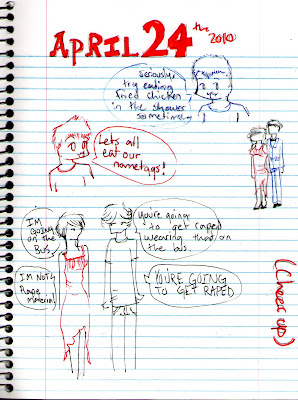 APRIL 24th 2010
seriously,
try eating
fried chicken
in the shower
sometime,
Lets all
eat our
nametags!
I'M
GOING
on the
Bus.
You're going
to get raped
wearing that on
the bis
I'M NOT
Rape
material
YOU'RE GOING
TO GET RAPED
(Cheer up)